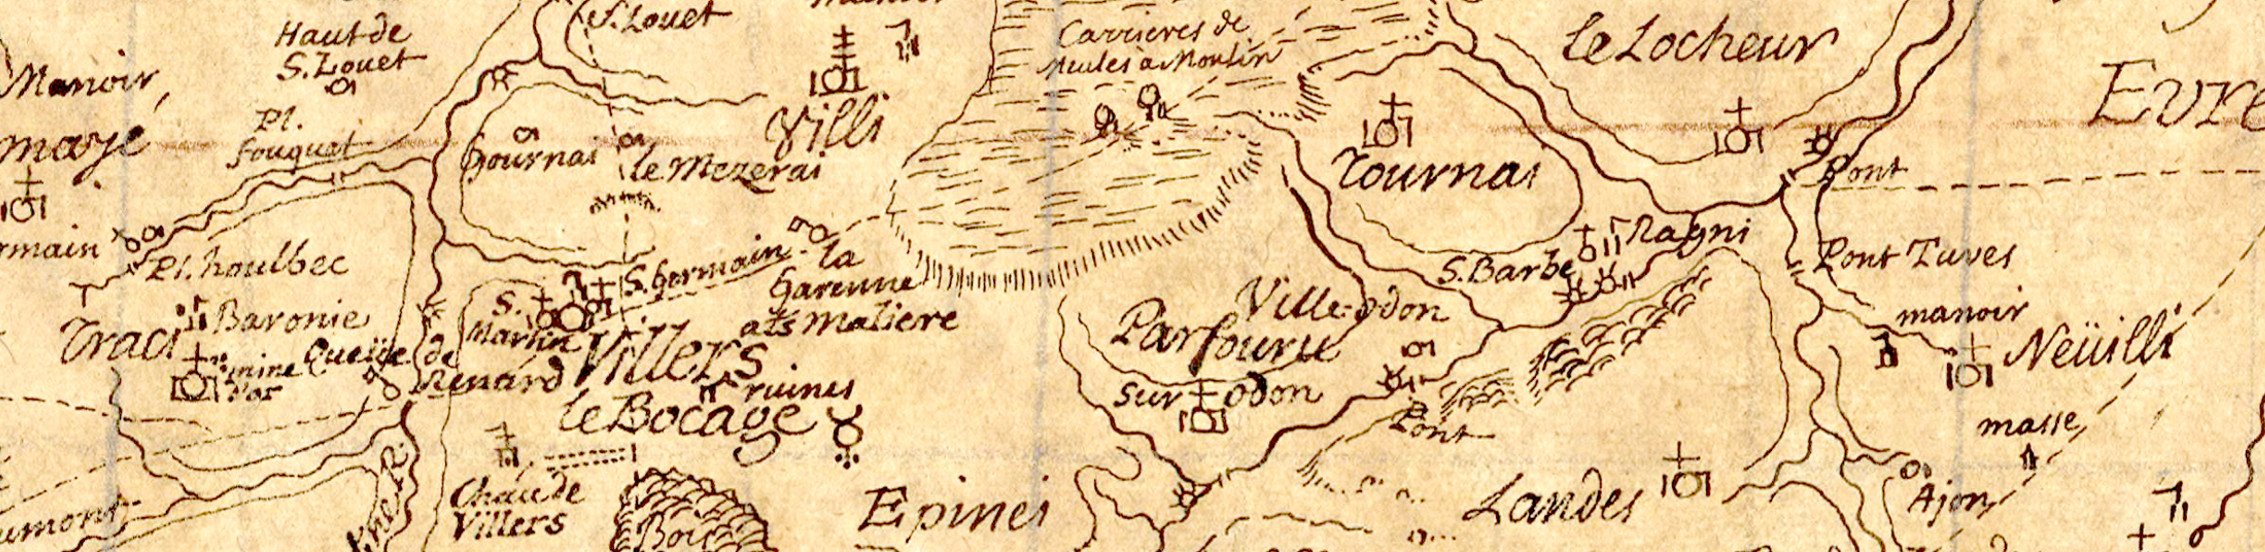 S. Louet
Haut de
S. Louet
Carrieres de
Meules à Moulin
le Locheur
Manoir,
Pl.
fouquet
Villi
Gournai
le Mezerai
Tournai
Pont
S. Germain
la
Garenne
als Maliere
Pl. houlbec
S. Barbe
Ragni
Pont Tuves
manoir
Neüilli
Traci
Baronie
mine
d'or
Queüe de
Renard
S.
Martin
Villers
le Bocage
ruines
Ville-odon
Parfouru
sur odon
Pont
masse,
Chau de
Villers
Bois
Epinei
Landes
Ajon